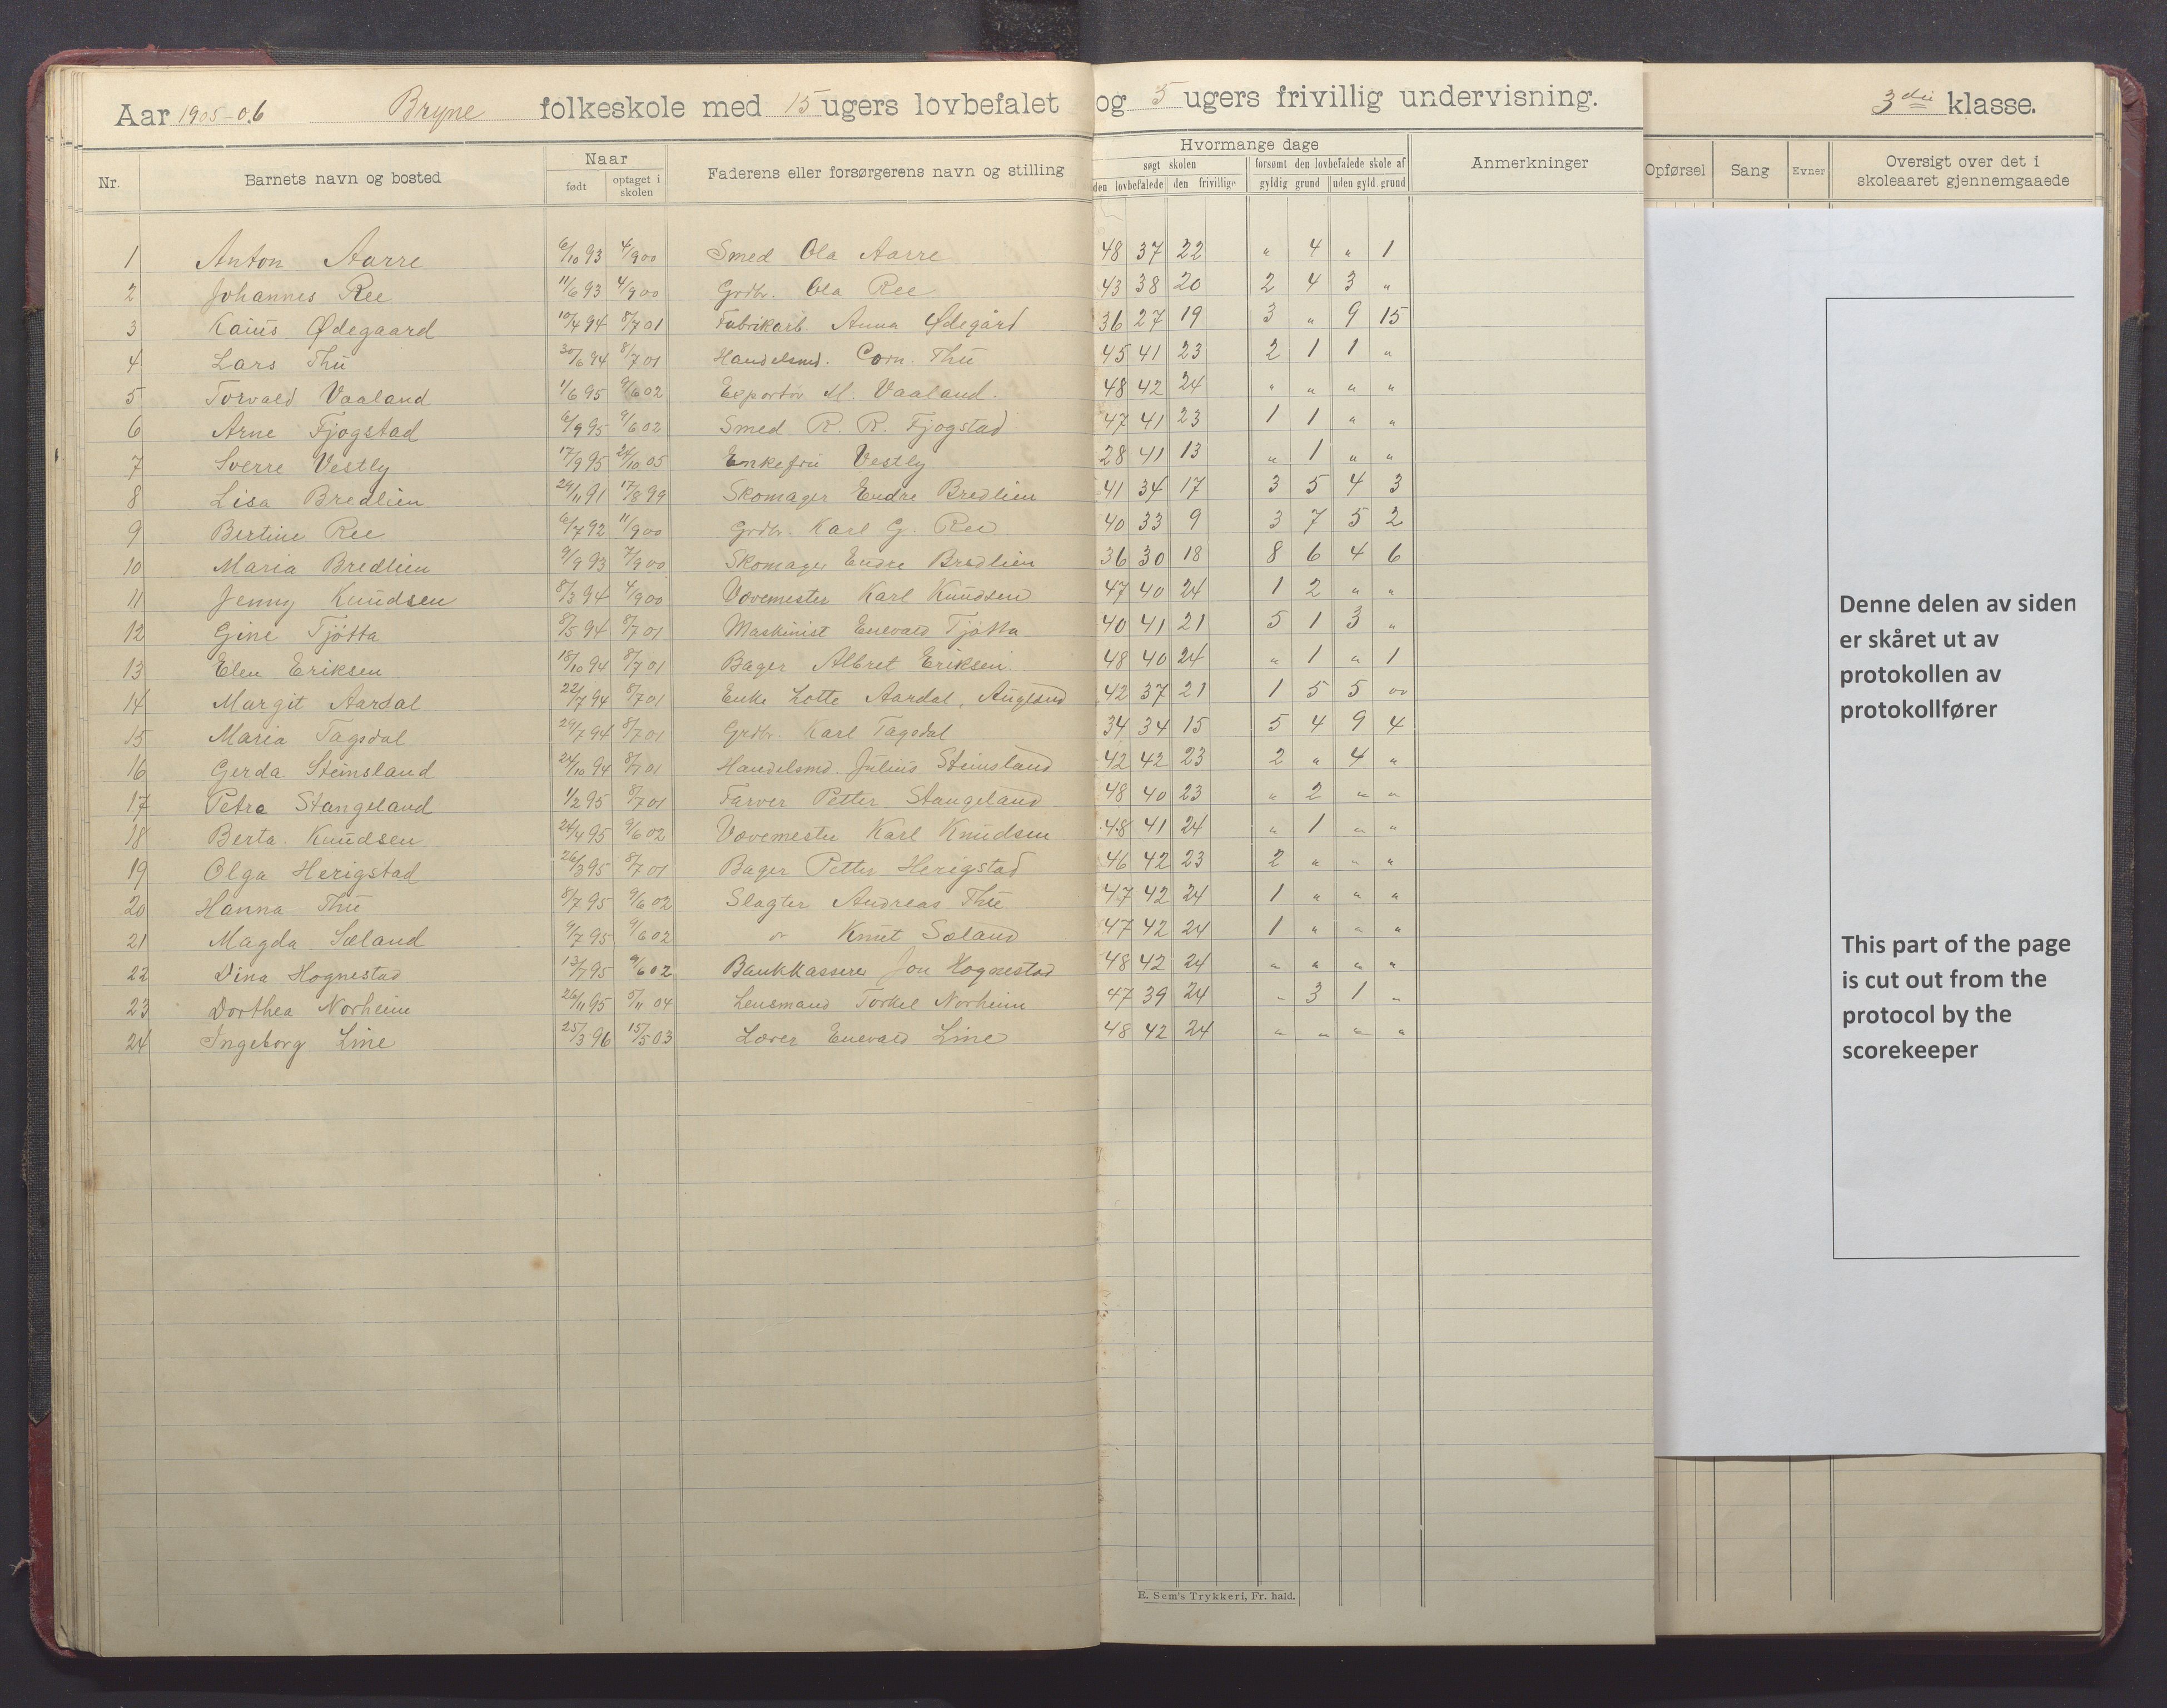 Aar 1905-06 Bryne folkeskole med 15 ugers lovbefalet og 5 ugers frivillig undervisning. 3die klasse.
Nr. Barnets navn og bosted Naar født optaget i skolen Faderens eller forsørgerens navn og stilling Hvormange dage søgt skolen den lovbefalede den frivillige forsømt den lovbefalede skole af gyldig grund uden gyld. grund Anmerkninger Opførsel Sang Evner Oversigt over det i skoleaaret gjennemgaaede
1 Anton Aarre 6/10 93 4/9 00 Smed Ola Aarre 48 37 22 " 4 " 1
2 Johannes Ree 11/6 93 4/9 00 Grdbr. Ola Ree 43 38 20 2 4 3 "
3 Kaius Ødegaard 10/4 94 8/7 01 Fabrikarb. Anna Ødegård 36 27 19 3 " 9 15
4 Lars Thu 30/6 94 8/7 01 Handelsmd. Corn. Thu 45 41 23 2 1 1 "
5 Torvald Vaaland 1/6 95 9/6 02 Exportør M. Vaaland. 48 42 24 " " " "
6 Arne Fjogstad 6/9 95 9/6 02 Smed R. R. Fjogstad 47 41 23 1 1 " "
7 Sverre Vestly 17/9 95 24/10 05 Enkefru Vestly 28 41 13 " 1 " "
8 Lisa Bredlien 29/11 91 17/8 99 Skomager Endre Bredlien 41 34 17 3 5 4 3
9 Bertine Ree 6/7 92 11/9 00 Grdbr. Karl G. Ree 40 33 9 3 7 5 2
10 Maria Bredlien 9/9 93 7/9 00 Skomager Endre Bredlien 36 30 18 8 6 4 6
11 Jenny Knudsen 8/3 94 4/9 00 Vævemester Karl Knudsen 47 40 24 1 2 " "
12 Gine Tjötta 8/5 94 8/7 01 Maskinist Enevald Tjötta 40 41 21 5 1 3 "
13 Elen Eriksen 15/10 94 8/7 01 Bager Albret Eriksen 48 40 24 " 1 " 1
14 Margit Aardal 22/7 94 8/7 01 Enke Lotte Aardal, Auglend 42 37 21 1 5 5 "
15 Maria Tagsdal 29/7 94 8/7 01 Grdbr. Karl Tagsdal 34 34 15 5 4 9 4
16 Gerda Steinsland 24/10 94 8/7 01 Handelsmd. Julius Steinsland 42 42 23 2 " 4 "
17 Petra Stangeland 1/2 95 8/7 01 Farver Petter Stangeland 48 40 23 " 2 " "
18 Berta Knudsen 24/4 95 9/6 02 Vævemester Karl Knudsen 48 41 24 " 1 " "
19 Olga Herigstad 26/3 95 8/7 01 Bager Petter Herigstad 46 42 23 2 " " "
20 Hanna Thu 8/7 95 9/6 02 Slagter Andreas Thu 47 42 24 1 " " "
21 Magda Sæland 9/7 95 9/6 02 " Knut Sæland 47 42 24 1 " " "
22 Dina Hognestad 13/7 95 9/6 02 Bankkasserer Jon Hognestad 48 42 24 " " " "
23 Dorthea Norheim 26/11 95 5/11 04 Lensmand Torkel Norheim 47 39 24 " 3 1 "
24 Ingeborg Line 25/3 96 15/5 03 Lærer Enevald Line 48 42 24 " " " "
E. Sem's Trykkeri, Fr. hald.
Denne delen av siden
er skåret ut av
protokollen av
protokollfører
This part of the page
is cut out from the
protocol by the
scorekeeper